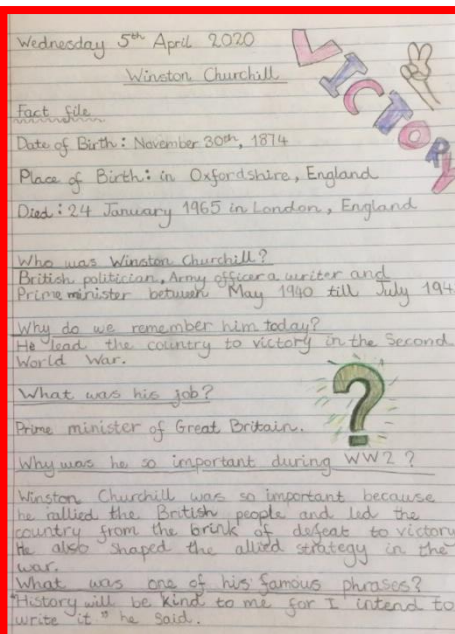 Wednesday 5th April 2020
VICTORY
Winston Churchill
Fact file
Date of Birth: November 30th, 1874
Place of Birth: in Oxfordshire, England
Died: 24 January 1965 in London, England
Who was Winston Churchill?
British politician, Army officer a writer and
Prime minister between May 1940 till July 194
Why do we remember him today?
He lead the country to victory in the Second
World War.
What was his job?
?
Prime minister of Great Britain.
Why was he so important during WW2?
Winston Churchill was so important because
he rallied the British people and led the
country from the brink of defeat to victory
He also shaped the allied strategy in the
war.
What was one of his famous phrases?
"History will be kind to me for I intend to
write it" he said.